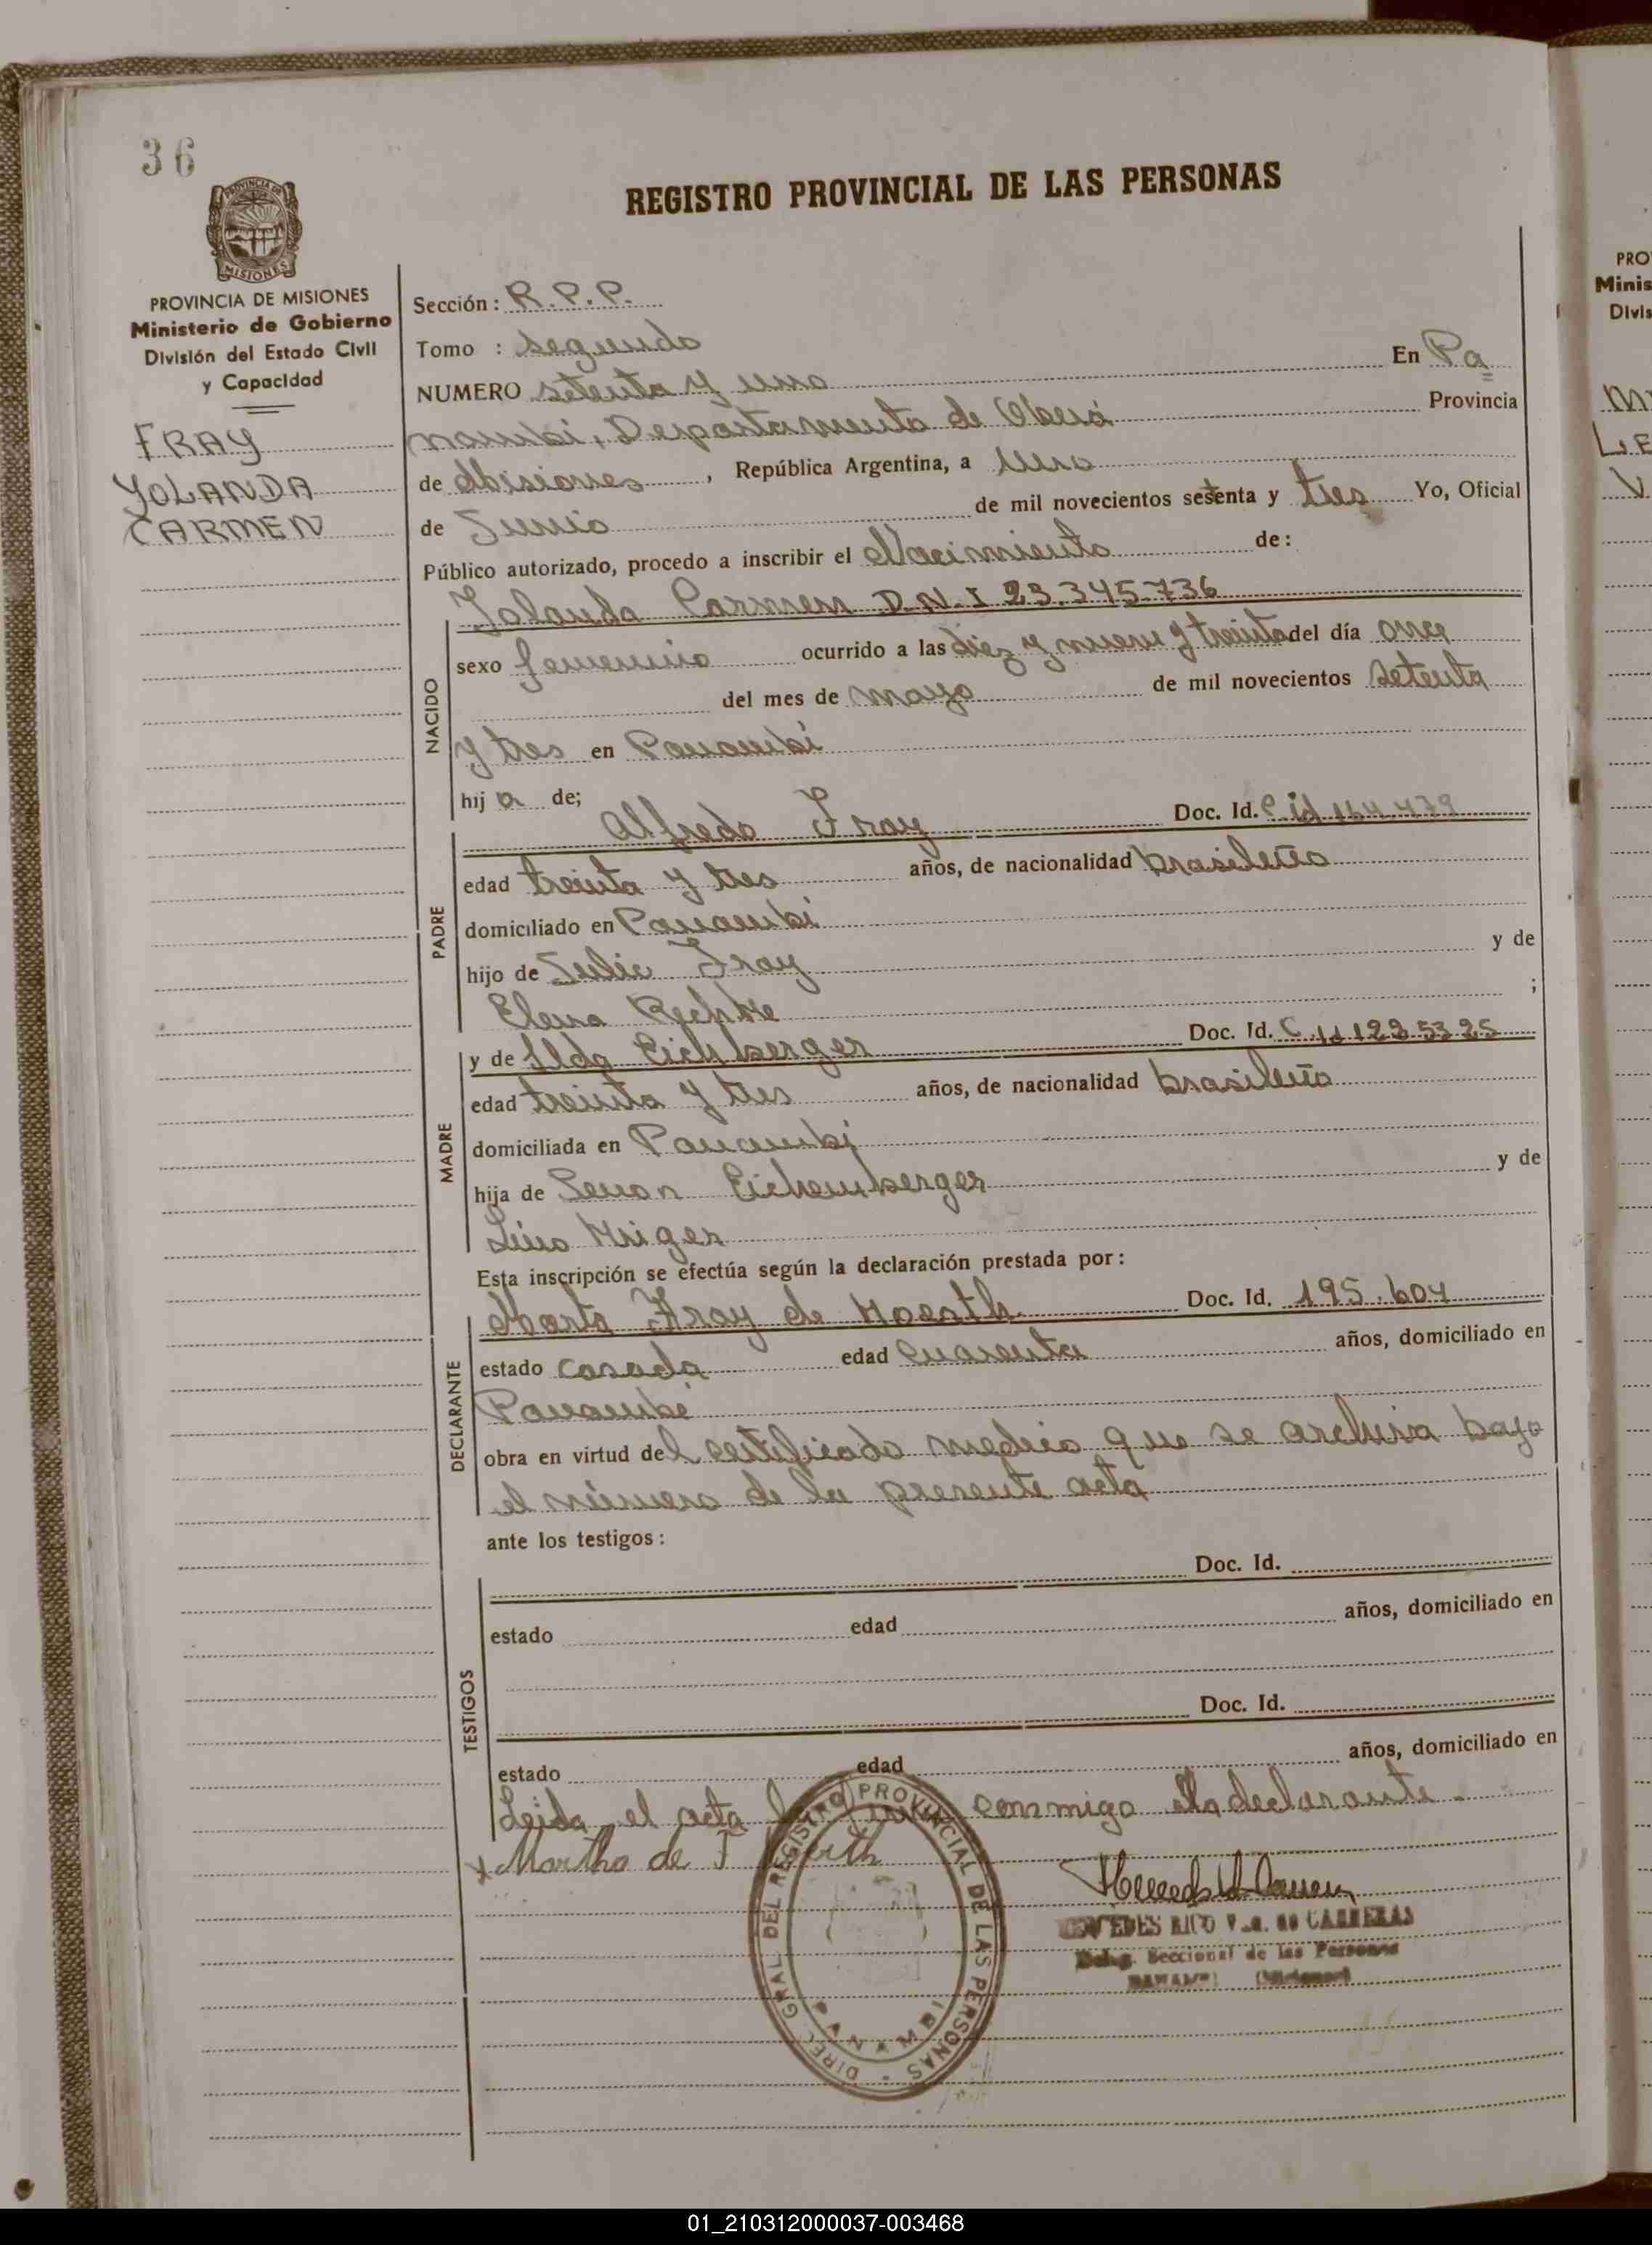 36
REGISTRO PROVINCIAL DE LAS PERSONAS
PROVINCIA DE
MISIONES
PROVINCIA DE MISIONES
Ministerio de Gobierno
División del Estado Civil
y Capacidad
FRAY
YOLANDA
CARMEN
Sección: R.P.P.
Tomo : segundo
NUMERO setenta y uno En Pa
nambi, Departamento de Oberá Provincia
de Misiones, República Argentina, a uno
de Junio de mil novecientos setenta y tres Yo, Oficial
Público autorizado, procedo a inscribir el Nacimiento de:
Yolanda Carmen D.N.I 23.345.736
NACIDO
sexo femenino ocurrido a las diez y nueve y treinta del día once
del mes de mayo de mil novecientos setenta
y tres en Panambi
hija de;
Alfredo Fray Doc. Id. C id 164.479
PADRE
edad treinta y tres años, de nacionalidad brasileño
domiciliado en Panambi
hijo de Julio Fray y de
Elena ;
y de Ilda Eichberger Doc. Id. C. id 1225325
MADRE
edad treinta y tres años, de nacionalidad brasileña
domiciliada en Panambi
hija de Eichemberger y de
Lina Kriger
Esta inscripción se efectúa según la declaración prestada por:
Marta Fray de Doc. Id. 195.604
DECLARANTE
estado casada edad cuarenta años, domiciliado en
Panambi
obra en virtud del certificado medico que se archiva bajo
el número de la presente acta
ante los testigos:
Doc. Id.
TESTIGOS
estado edad años, domiciliado en
Doc. Id.
estado edad años, domiciliado en
Leida el acta conmigo la declarante.
x Martha de F
DIREC. GRAL. DEL REGISTRO PROVINCIAL DE LAS PERSONAS
PANAMBI
MERCEDES RICO Vda. de CARRERAS
Deleg. Seccional de las Personas
PANAMBI (Misiones)
PRO
Minis
Divis
01_210312000037-003468